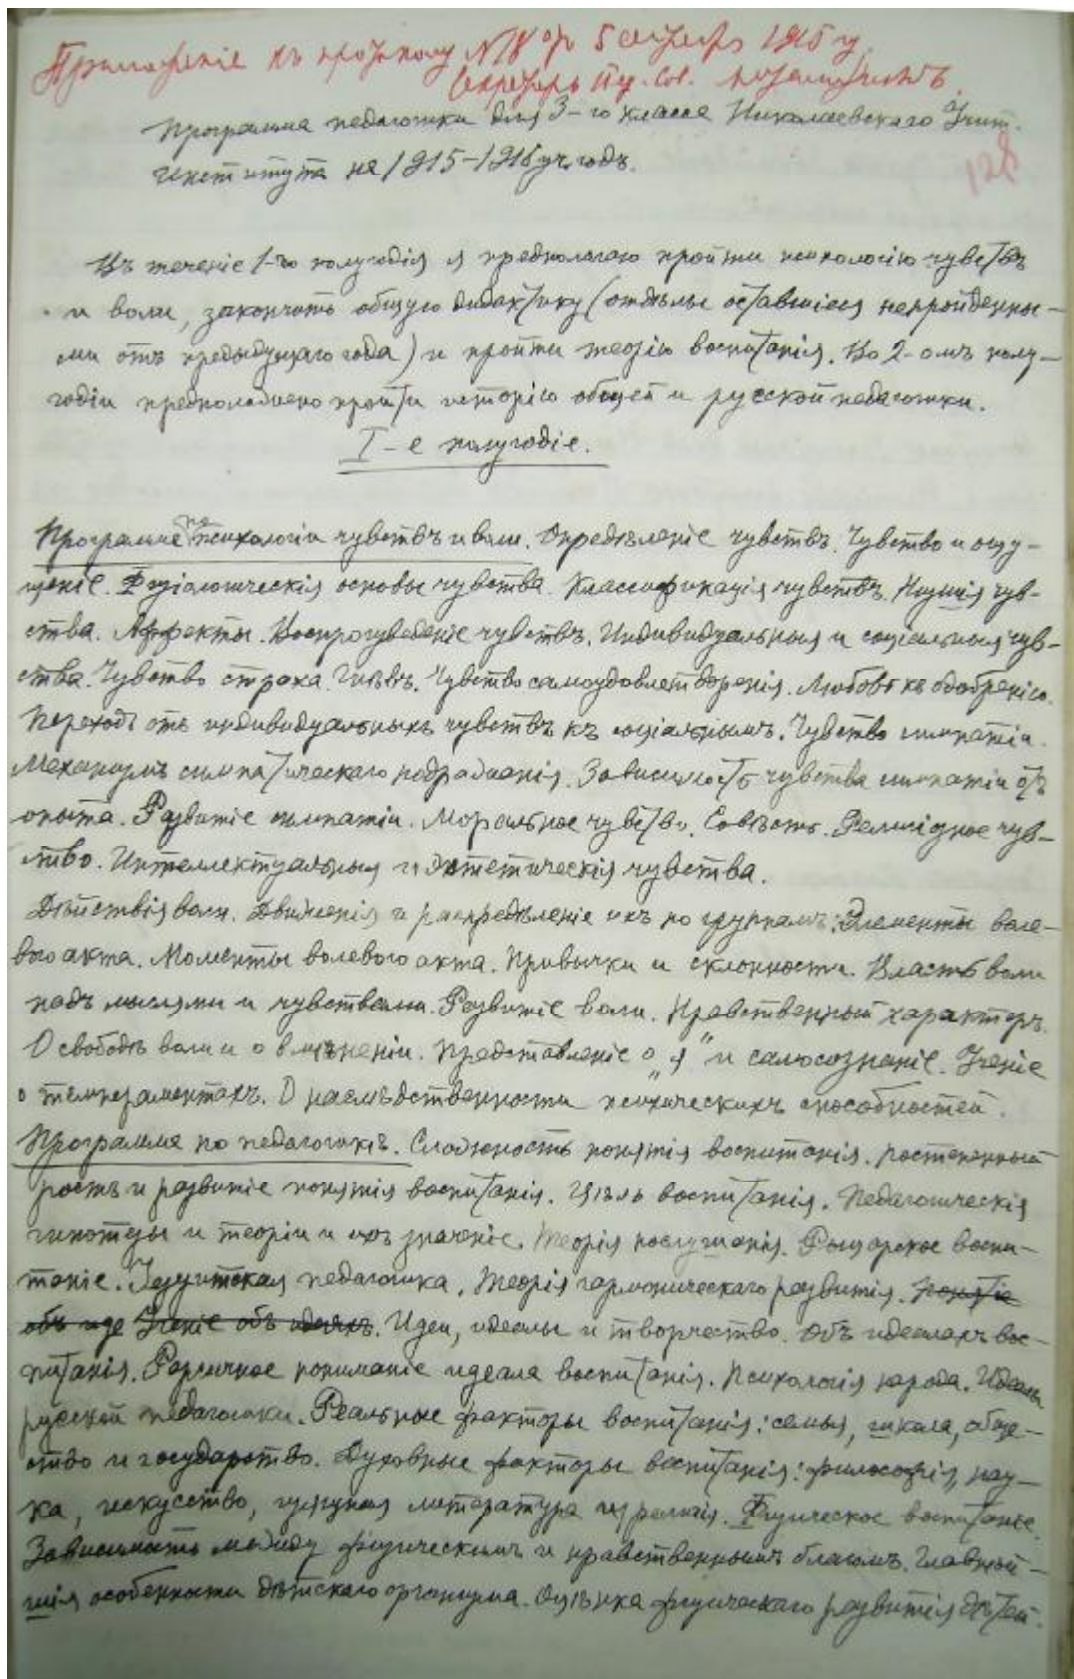 Приложеніе къ протоколу №18 отъ 5 сентября 1915 г.
Секретарь Пед. Сов.
Программа педагогики для 3-го класса Николаевскаго Учит.
Института на 1915-1916 уч. годъ.
128
Въ теченіе 1-го полугодія я предполагаю пройти психологію чувствъ
и воли, закончить общую дидактику (отдѣлы оставшіеся непройденны-
ми отъ предыдущаго года) и пройти теорію воспитанія. Во 2-омъ полу-
годіи предположено пройти исторію общей и русской педагогики.
I-е полугодіе.
Программа по психологіи чувствъ и воли. Опредѣленіе чувствъ. Чувство и ощу-
щеніе. Физіологическія основы чувства. Классификація чувствъ. Низшія чув-
ства. Аффекты. Воспроизведеніе чувствъ. Индивидуальныя и соціальныя чув-
ства. Чувство страха. Гнѣвъ. Чувство самоудовлетворенія. Любовь къ одобренію.
Переходъ отъ индивидуальныхъ чувствъ къ соціальнымъ. Чувство симпатіи.
Механизмъ симпатическаго подражанія. Зависимость чувства симпатіи отъ
опыта. Развитіе симпатіи. Моральное чувство. Совѣсть. Религіозное чув-
ство. Интеллектуальныя и эстетическія чувства.
Дѣйствія воли. Движенія и распредѣленіе ихъ по группамъ. Элементы воле-
вого акта. Моменты волевого акта. Привычки и склонности. Власть воли
надъ мыслями и чувствами. Развитіе воли. Нравственный характеръ.
О свободѣ воли и о вмѣненіи. Представленіе о „я" и самосознаніе. Ученіе
о темпераментахъ. О наслѣдственности психическихъ способностей.
Программа по педагогикѣ. Сложность понятія воспитанія. Постепенный
ростъ и развитіе понятія воспитанія. Цѣль воспитанія. Педагогическія
гипотезы и теоріи и ихъ значеніе. Теорія послушанія. Рыцарское воспи-
таніе. Іезуитская педагогика. Теорія гармоническаго развитія. Понятіе
объ иде Ученіе объ идеяхъ. Идеи, идеалы и творчество. Объ идеалахъ вос-
питанія. Различное пониманіе идеала воспитанія. Психологія народа. Идеалы
русской педагогики. Реальные факторы воспитанія: семья, школа, обще-
ство и государство. Духовные факторы воспитанія: философія, нау-
ка, искусство, изящная литература и религія. Физическое воспитаніе.
Зависимость между физическимъ и нравственнымъ благомъ. Главнѣй-
шія особенности дѣтскаго организма. Оцѣнка физическаго развитія дѣтей.